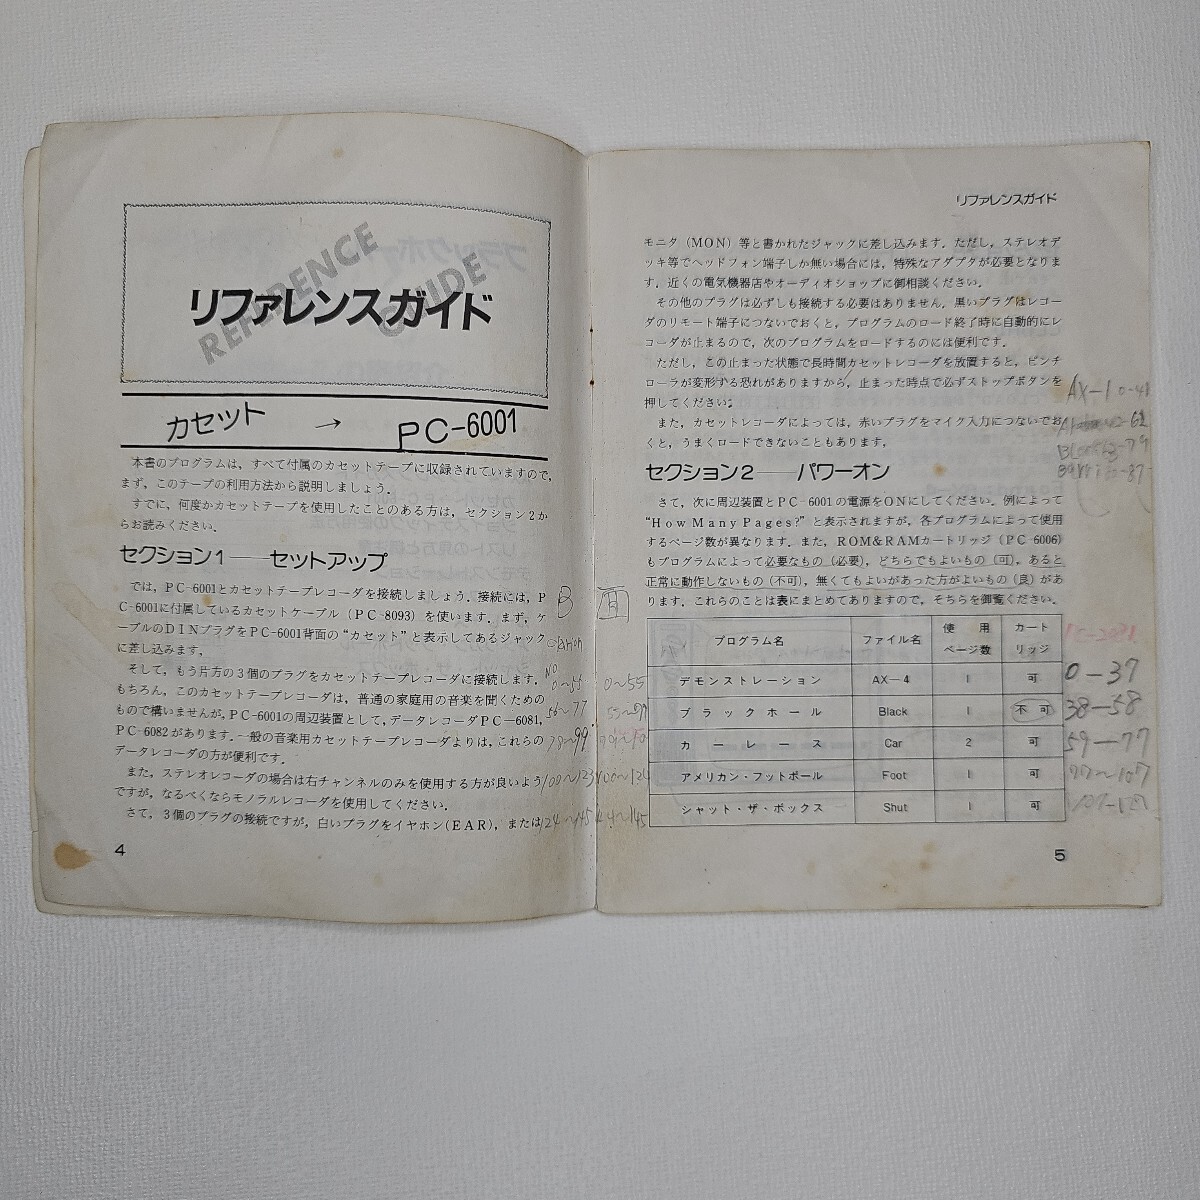 REFERENCE GUIDE
リファレンスガイド
カセット → PC-6001
本書のプログラムは，すべて付属のカセットテープに収録されていますので，
まず，このテープの利用方法から説明しましょう．
すでに，何度かカセットテープを使用したことのある方は，セクション2か
らお読みください．
セクション1──セットアップ
では，PC-6001とカセットテープレコーダを接続しましょう．接続には，P
C-6001に付属しているカセットケーブル（PC-8093）を使います．まず，ケ
ーブルのDINプラグをPC-6001背面の“カセット”と表示してあるジャック
に差し込みます．
そして，もう片方の3個のプラグをカセットテープレコーダに接続します．
もちろん，このカセットテープレコーダは，普通の家庭用の音楽を聞くための
もので構いませんが，PC-6001の周辺装置として，データレコーダPC-6081，
PC-6082があります．一般の音楽用カセットテープレコーダよりは，これらの
データレコーダの方が便利です．
また，ステレオレコーダの場合は右チャンネルのみを使用する方が良いよう
ですが，なるべくならモノラルレコーダを使用してください．
さて，3個のプラグの接続ですが，白いプラグをイヤホン(EAR)，または
4
B
NO
0~55
56~77
78~99
100~123
124~145
0~55
リファレンスガイド
モニタ（MON）等と書かれたジャックに差し込みます．ただし，ステレオデ
ッキ等でヘッドフォン端子しか無い場合には，特殊なアダプタが必要となりま
す．近くの電気機器店やオーディオショップに御相談ください．
その他のプラグは必ずしも接続する必要はありません．黒いプラグはレコー
ダのリモート端子につないでおくと，プログラムのロード終了時に自動的にレ
コーダが止まるので，次のプログラムをロードするのには便利です．
ただし，この止まった状態で長時間カセットレコーダを放置すると，ピンチ
ローラが変形する恐れがありますから，止まった時点で必ずストップボタンを
押してください．
また，カセットレコーダによっては，赤いプラグをマイク入力につないでお
くと，うまくロードできないこともあります．
セクション2──パワーオン
さて，次に周辺装置とPC-6001の電源をONにしてください．例によって
“How Many Pages?”と表示されますが，各プログラムによって使用
するページ数が異なります．また，ROM&RAMカートリッジ（PC-6006）
もプログラムによって必要なもの（必要），どちらでもよいもの（可），あると
正常に動作しないもの（不可），無くてもよいがあった方がよいもの（良）があ
ります．これらのことは表にまとめてありますので，そちらを御覧ください．
プログラム名 ファイル名 使用ページ数 カートリッジ
デモンストレーション AX-4 1 可
ブラックホール Black 1 不可
カーレース Car 2 可
アメリカン・フットボール Foot 1 可
シャット・ザ・ボックス Shut 1 可
0-37
38-58
59-77
77~107
5